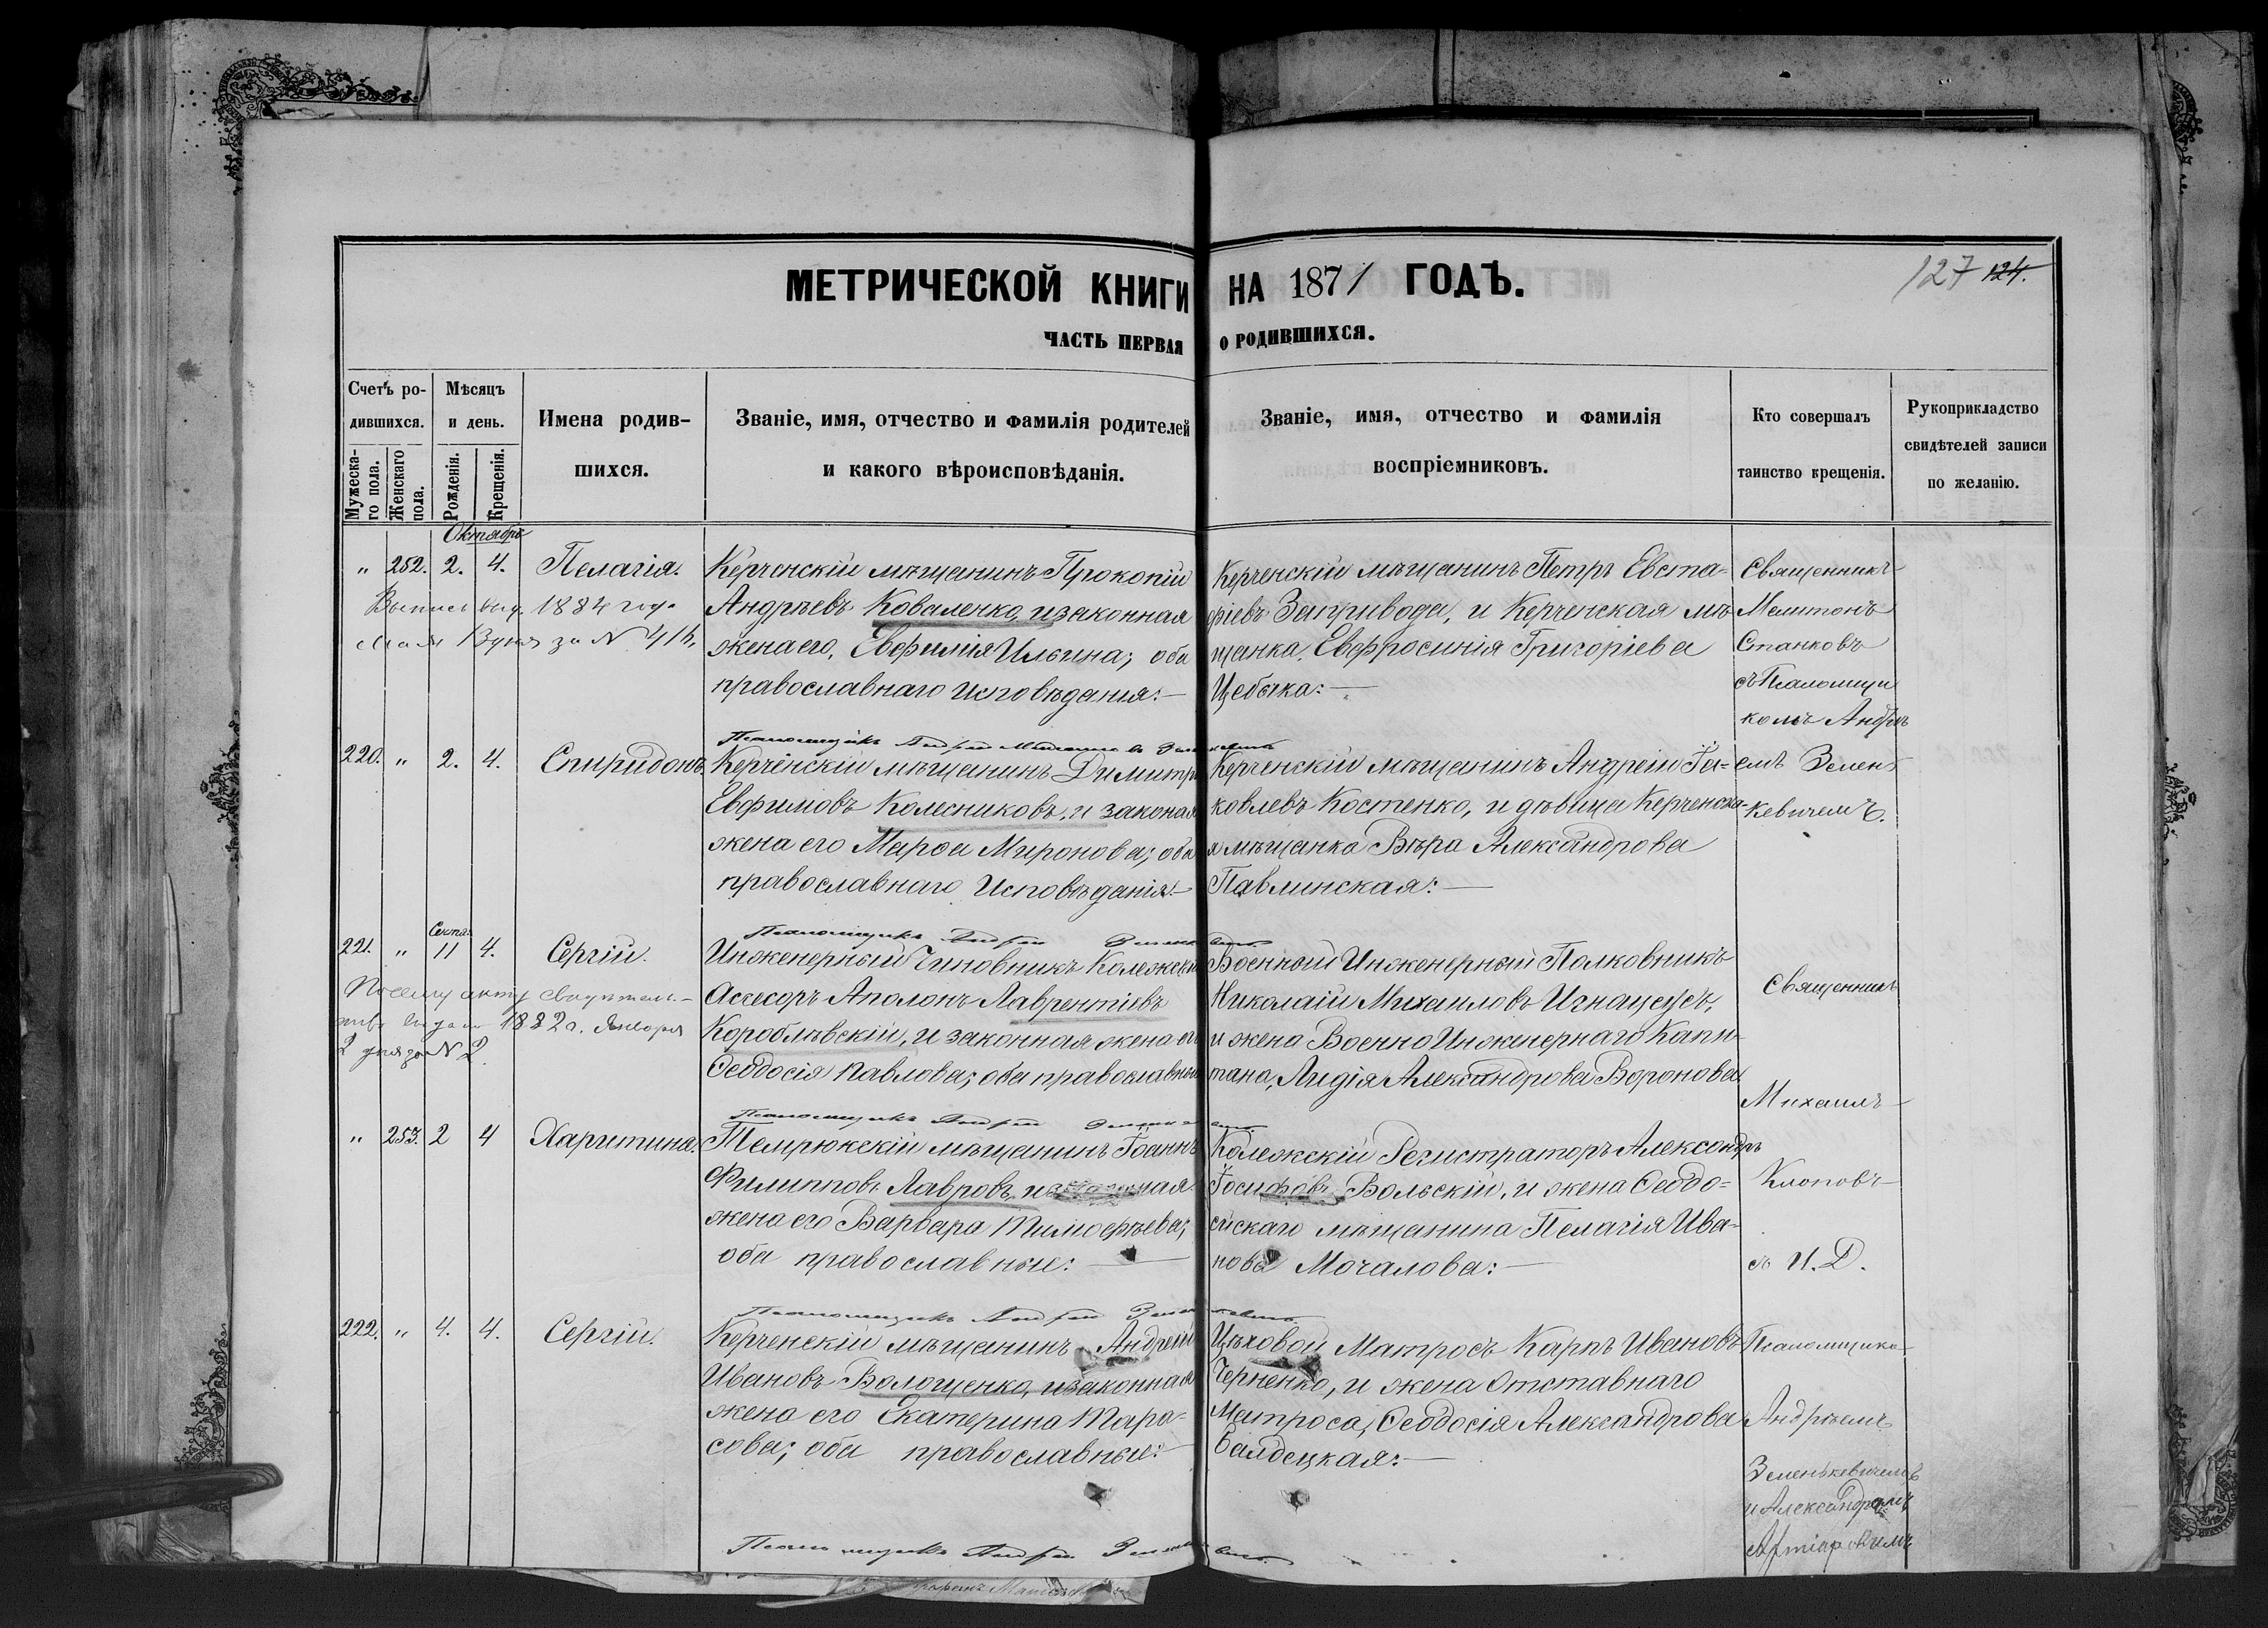 МЕТРИЧЕСКОЙ КНИГИ НА 1871 ГОДЪ.
127 124.
ЧАСТЬ ПЕРВАЯ О РОДИВШИХСЯ.
Счетъ родившихся.
Мужескаго пола.
Женскаго пола.
Мѣсяцъ и день.
Рожденія.
Крещенія.
Имена родившихся.
Званіе, имя, отчество и фамилія родителей
и какого вѣроисповѣданія.
Званіе, имя, отчество и фамилія
воспріемниковъ.
Кто совершалъ
таинство крещенія.
Рукоприкладство
свидѣтелей записи
по желанію.
Октябрь
" 252. 2. 4. Пелагія.
1884 года
за № 414.
Керченскій мѣщанинъ Прокопій
Андреевъ Коваленко, и законная
жена его, Евфимія Ильина; оба
православнаго исповѣданія:—
Керченскій мѣщанинъ Петръ Евста-
фіевъ Запривода, и Керченская мѣ-
щанка, Евфросинія Григоріева
Цебука:—
Священникъ
Мелитонъ
Станковъ
съ Псаломщи
комъ Андре
емъ Зелен
кевичемъ.
220. " 2. 4. Спиридонъ.
Керченскій мѣщанинъ Димитрі
Евфимовъ Колесниковъ, и законая
жена его Марфа Миронова; оба
православнаго исповѣданія:—
Керченскій мѣщанинъ Андрей Іа-
ковлевъ Костенко, и дѣвица Керченска-
я мѣщанка Вѣра Александрова
Павлинская:—
Псаломщикъ Андрей
221. " Септ. 11 4. Сергій.
По сему акту свидетель-
ство выдано 1882 г. Января
2 дня за № 2.
Инженерный Чиновникъ Колежскі
Ассесоръ Аполонъ Лаврентіевъ
Короблѣвскій, и законная жена его
Ѳеодосія Павлова; оба православные
Военный Инженерный Полковникъ
Николай Михаиловъ Игнаціусъ,
и жена Военно Инженернаго Капи-
тана, Лидія Александрова Воронова.
Священникъ
Михаилъ
Клоповъ
съ И. Д.
Псаломщика
Андреемъ
Зеленькевичемъ
и Александромъ
Псаломщикъ Андрей
" 253. 2 4 Харитина.
Темрюкскій мѣщанинъ Іоаннъ
Филипповъ Лавровъ, и законная
жена его Варвара Тимофѣева;
оба православные:—
Колежскій Регистраторъ Александръ
Іосифовъ Вольскій, и жена Ѳеодо-
сійскаго мѣщанина Пелагія Ива-
нова Мочалова:—
Псаломщикъ Андрей
222. " 4. 4. Сергій.
Керченскій мѣщанинъ Андрей
Ивановъ Волощенко, и законная
жена его Екатерина Тара-
сова; оба православные:—
Цѣховой Матросъ Карпъ Ивановъ
Черненко, и жена Отставнаго
Матроса, Ѳеодосія Александрова
Балдецкая:—
Псаломщикъ Андрей